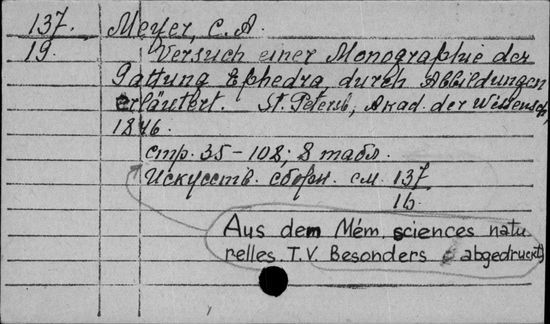 137. Meyer, C.A.
19. Versuch einer Monographie der
Gattung Ephedra, durch Abbildungen
erläutert. St. Petersb, Akad. der Wissensch,
1846.
стр. 35-108; 8 табл.
Искусств. сборн. см. 137
16
Aus dem Mém. sciences natu
relles. T.V. Besonders abgedruckt)